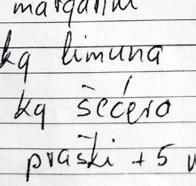 margarin
kg limuna
kg šećera
praški + 5